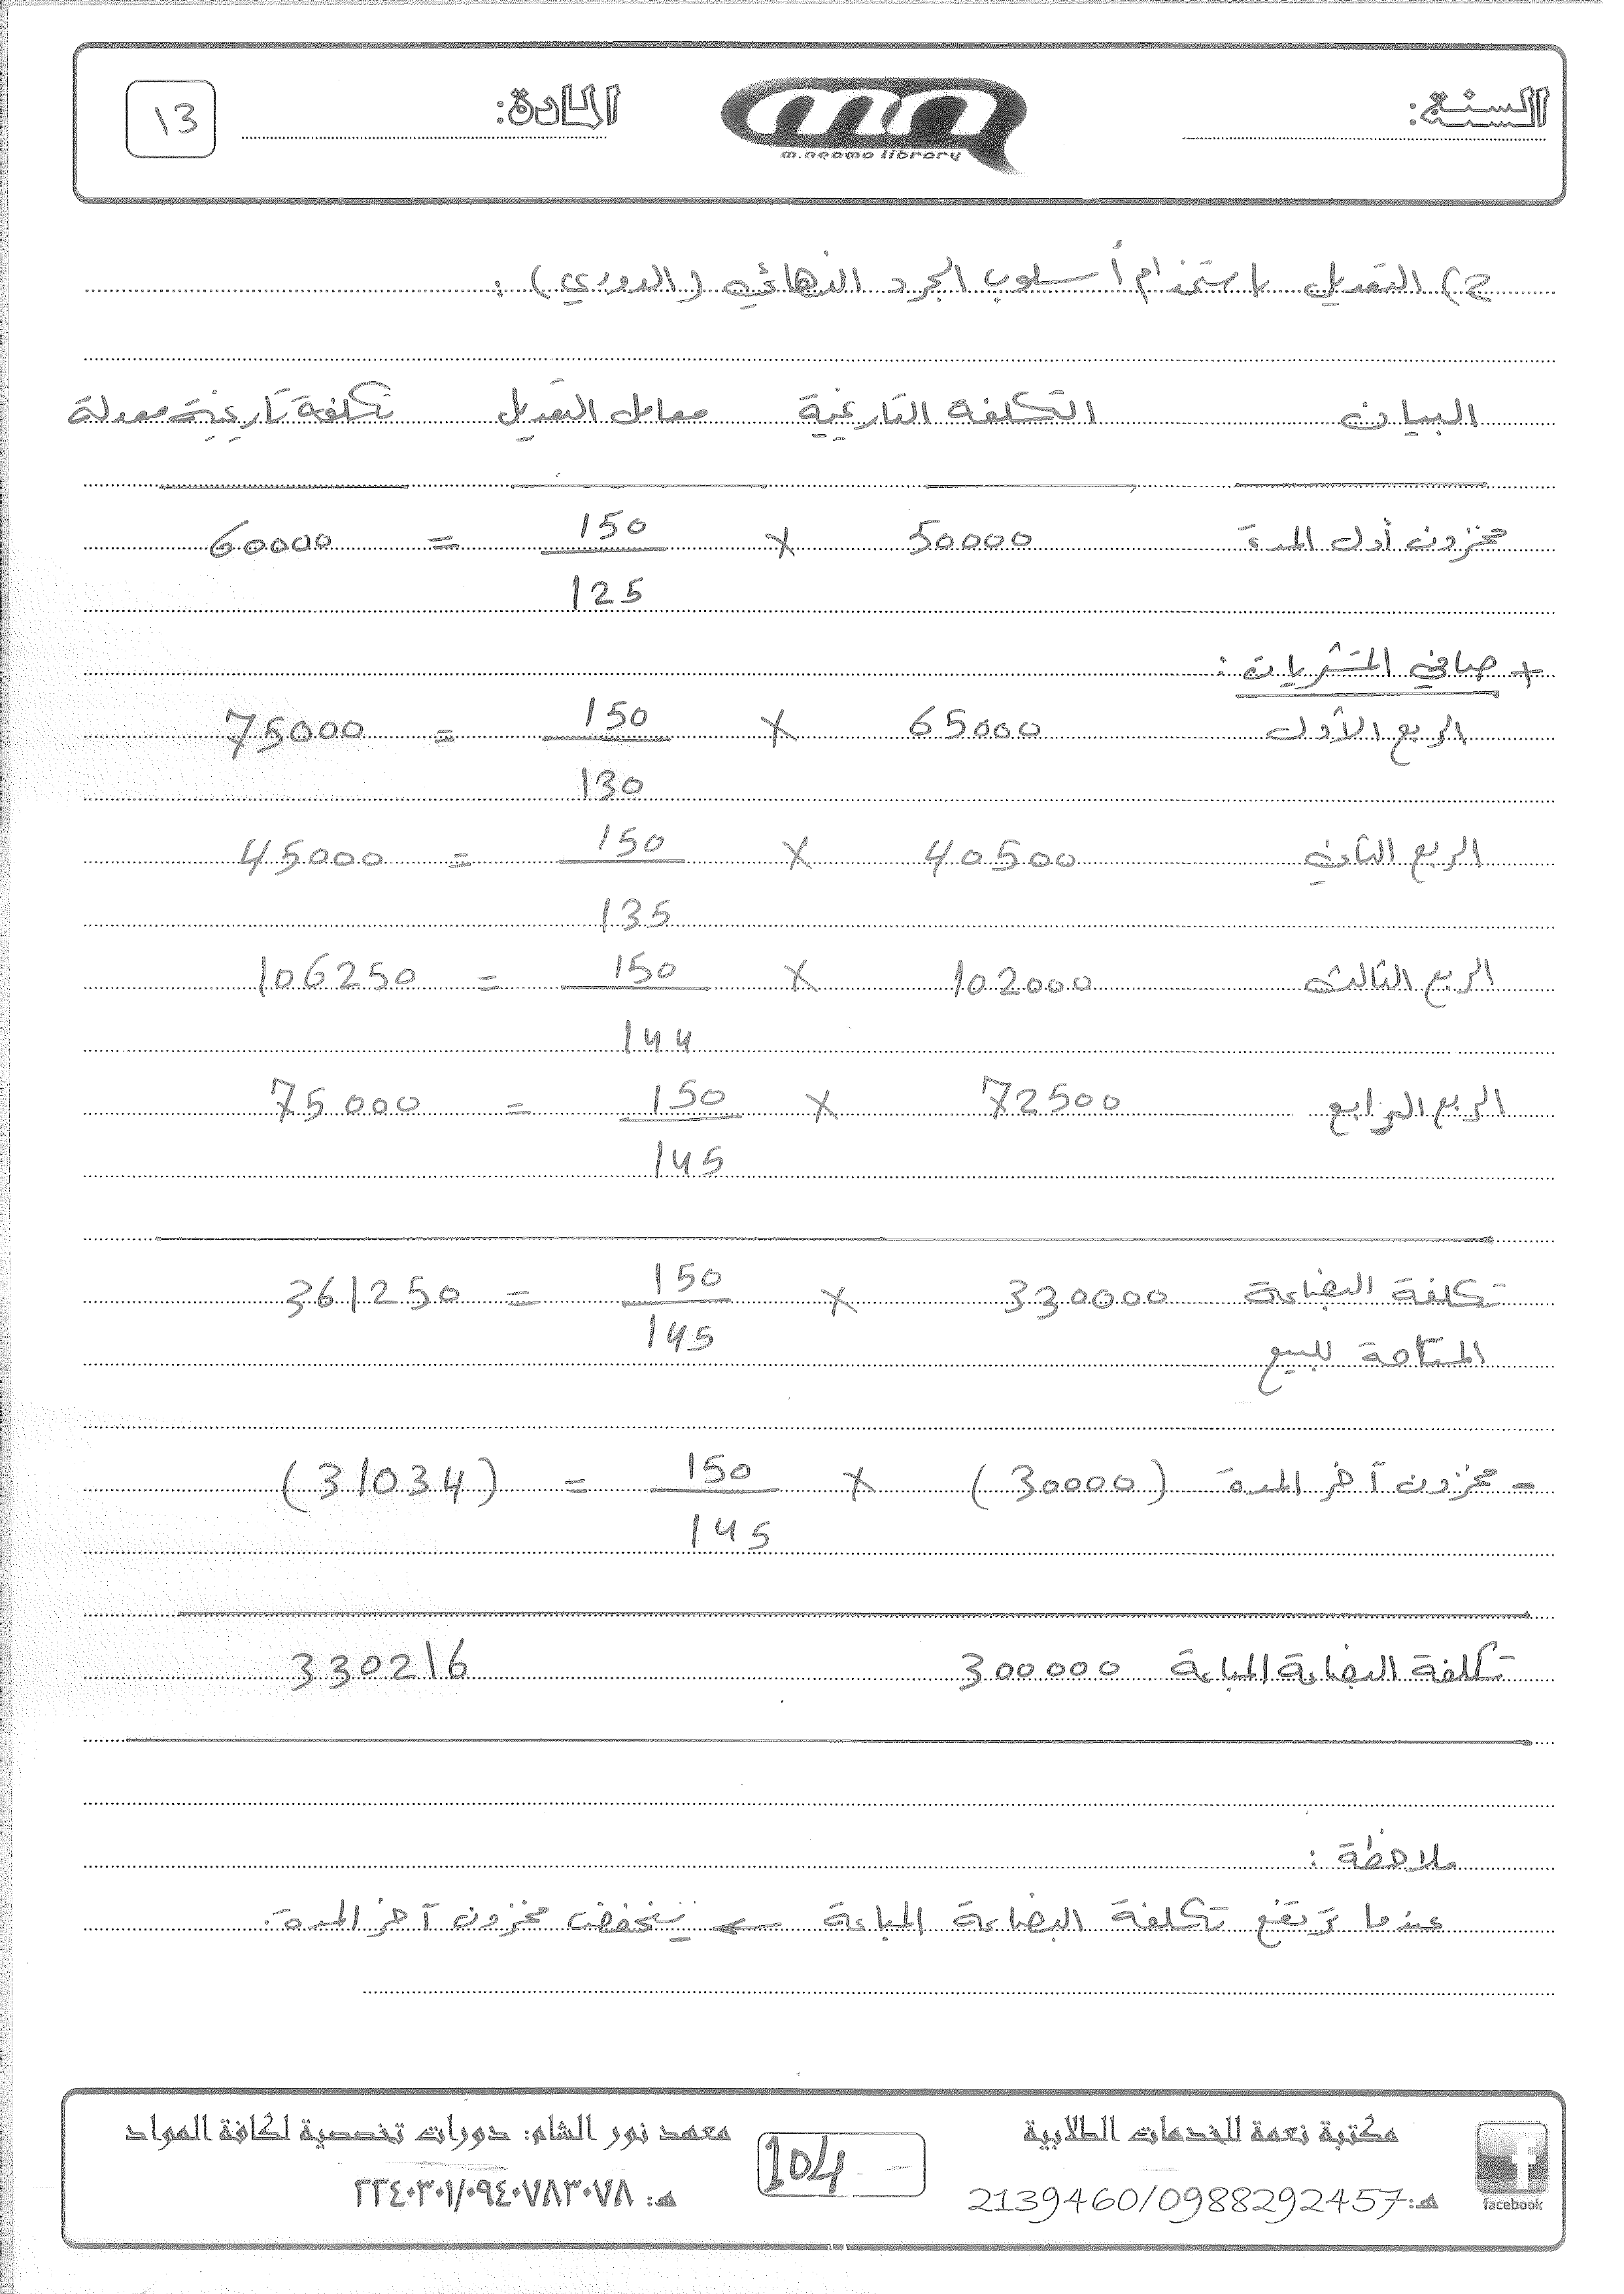 السنة:
المادة:
13
m.neama library
2) التعديل باستخدام أسلوب الجرد النهائي (الدوري) :
البيان التكلفة التاريخية معامل التعديل تكلفة تاريخية معدلة
مخزون أول المدة 50000 × 150/125 = 60000
+ صافي المشتريات :
الربع الأول 65000 × 150/130 = 75000
الربع الثاني 40500 × 150/135 = 45000
الربع الثالث 102000 × 150/144 = 106250
الربع الرابع 72500 × 150/145 = 75000
تكلفة البضاعة 330000 × 150/145 = 361250
المتاحة للبيع
- مخزون آخر المدة (30000) × 150/145 = (31034)
تكلفة البضاعة المباعة 300000 330216
ملاحظة :
عندما ترتفع تكلفة البضاعة المباعة ← ينخفض مخزون آخر المدة.
مكتبة نعمة للخدمات الطلابية
هـ: 2139460/0988292457
facebook
104
معهد نور الشام: دورات تخصصية لكافة المواد
هـ: ٢٢٤٠٣٠١/٠٩٤٠٧٨٣٠٧٨